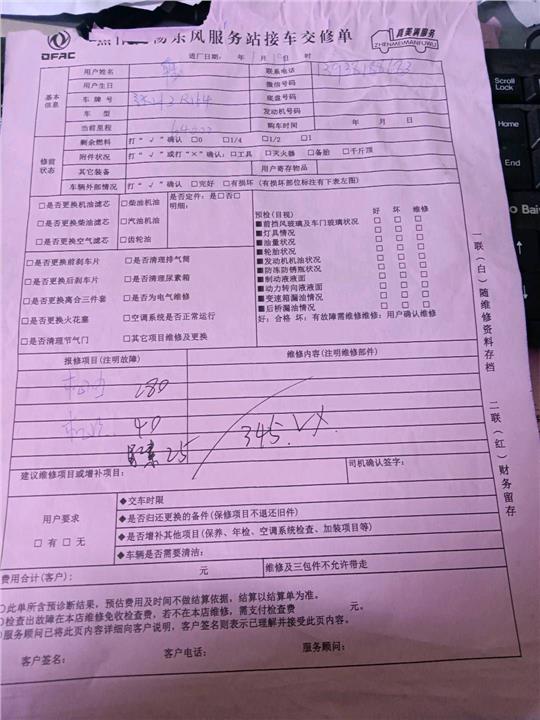 DFAC
东风服务站接车交修单
真美满服务
ZHENMEIMANFUWU
进厂日期： 年 月 日 时
基本信息
用户姓名 联系电话
用户生日 微信号码
车牌号 底盘号码
车型 发动机号码
当前里程 购车时间 年 月 日
修前状态
剩余燃料 打“√”确认 □0 □1/4 □1/2 □1
附件状况 打“√”或打“×”确认：□工具 □灭火器 □备胎 □千斤顶
其它装备 用户寄存物品
车辆外部情况 打“√”确认 □完好 □有损坏（有损坏部位标注有下表左图）
□是否更换机油滤芯 □柴油机油 是否定件：是□否□
明细：
□是否更换柴油滤芯 □汽油机油
□是否更换空气滤芯 □齿轮油
□是否更换前刹车片 □是否清理排气筒
□是否更换后刹车片 □是否清理尿素箱
□是否更换离合三件套 □是否为电气维修
□是否更换火花塞 □空调系统是否正常运行
□是否清理节气门 □其它项目维修及更换
预检（目视） 好 坏 维修
■前挡风玻璃及车门玻璃状况 □ □ □
■灯具情况 □ □ □
■油量状况 □ □ □
■轮胎状况 □ □ □
■发动机机油状况 □ □ □
■防冻防锈瓶状况 □ □ □
■制动液液面 □ □ □
■动力转向液液面 □ □ □
■变速箱漏油情况 □ □ □
■后桥漏油情况 □ □ □
好：合格 坏：有故障需维修维修：用户确认维修
报修项目（注明故障） 维修内容（注明维修部件）
280
40
25
345.
建议维修项目或增补项目： 司机确认签字：
用户要求
□有 □无
◆交车时限
◆是否归还更换的备件（保修项目不退还旧件）
◆是否增补其他项目（保养、年检、空调系统检查、加装项目等）
◆车辆是否需要清洁：
费用合计（客户）： 元 维修及三包件不允许带走
此单所含预诊断结果，预估费用及时间不做结算依据，结算以结算单为准。
检查出故障在本店维修免收检查费，若不在本店维修，需支付检查费 元。
服务顾问已将此页内容详细向客户说明，客户签名则表示已理解并接受此页内容。
客户签名： 客户电话： 服务顾问：
一联（白）随维修资料存档
二联（红）财务留存
Scroll
Lock
Home
End